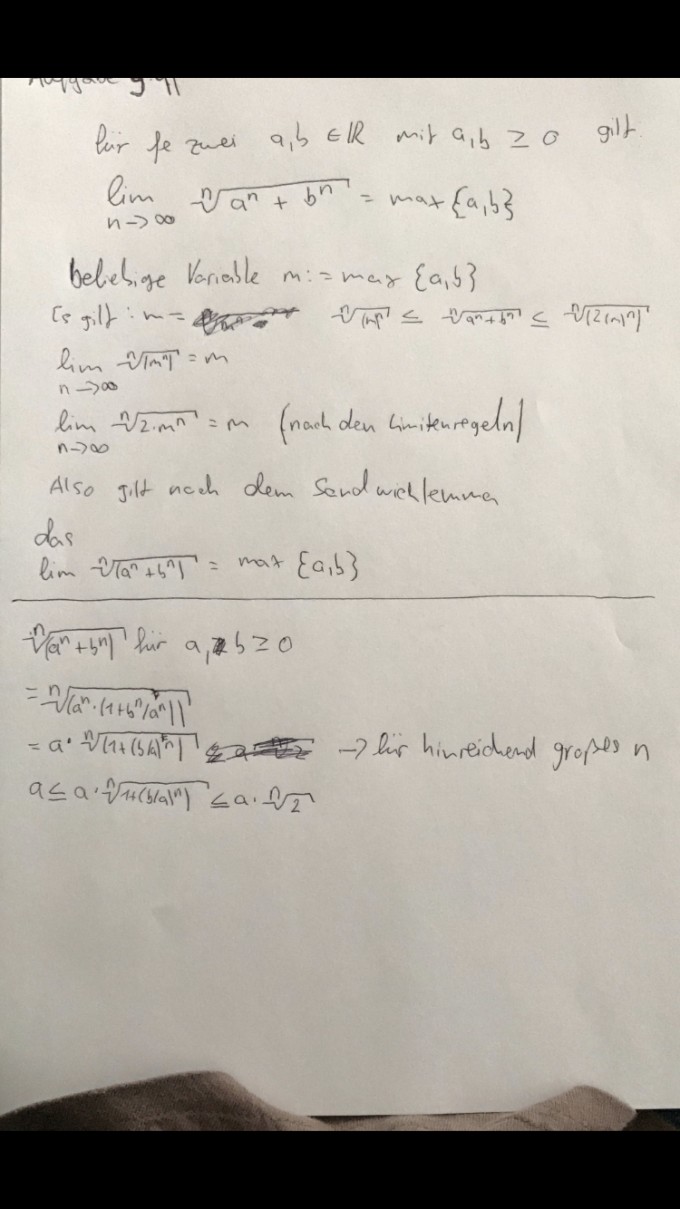 Aufgabe
für je zwei a,b ∈ ℝ mit a,b ≥ 0 gilt.
lim n→∞ ⁿ√(aⁿ + bⁿ) = max {a,b}
beliebige Variable m := max {a,b}
Es gilt : m = ⁿ√(m)ⁿ ≤ ⁿ√(aⁿ+bⁿ) ≤ ⁿ√(2(m)ⁿ)
lim n→∞ ⁿ√(mⁿ) = m
lim n→∞ ⁿ√(2·mⁿ) = m (nach den Limitenregeln)
Also gilt nach dem Sandwichlemma
das
lim ⁿ√(aⁿ+bⁿ) = max {a,b}
ⁿ√(aⁿ+bⁿ) für a, b ≥ 0
= ⁿ√(aⁿ·(1+bⁿ/aⁿ))
= a· ⁿ√(1+(b/a)ⁿ) → für hinreichend großes n
a ≤ a· ⁿ√(1+(b/a)ⁿ) ≤ a· ⁿ√2